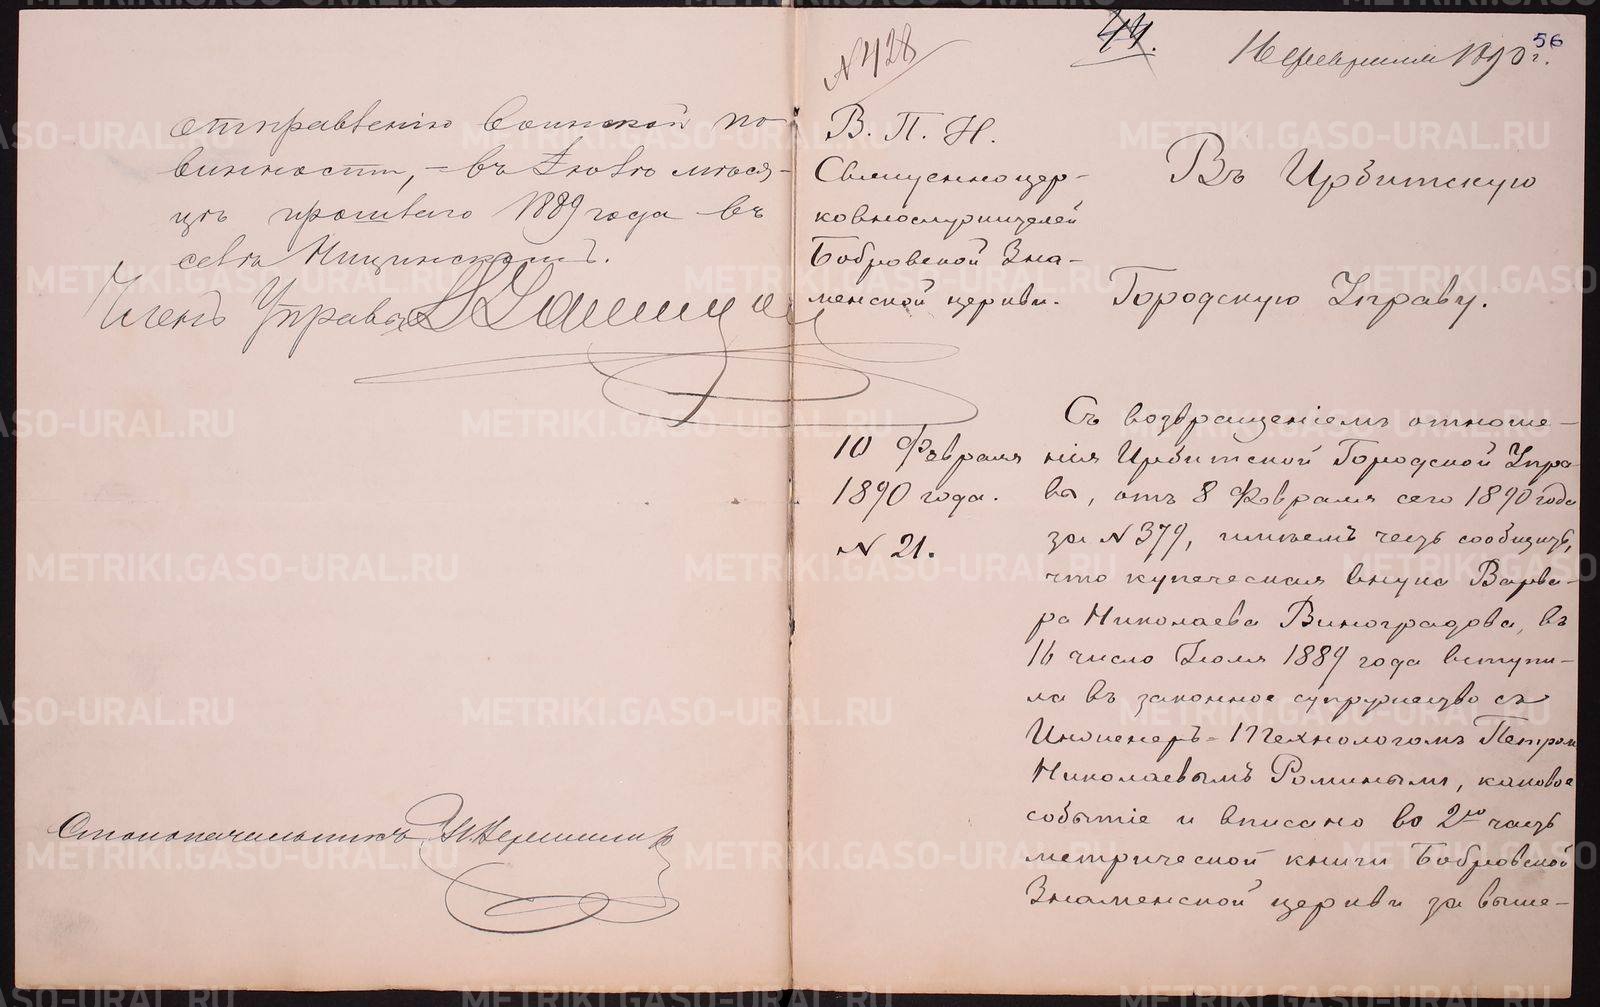 отправленію воинской по-
винности, - въ Іюлѣ мѣся-
цѣ прошлаго 1889 года въ
селѣ Ницинскомъ.
Членъ Управы
Столоначальникъ
N 428
44.
16 февраля 1890 г.
56
В. П. И.
Священноцер-
ковнослужителей
Бобровской Зна-
менской церкви.
10 Февраля
1890 года.
N 21.
Въ Ирбитскую
Городскую Управу.
Съ возвращеніемъ отноше-
нія Ирбитской Городской Упра-
вы, отъ 8 Февраля сего 1890 года
за N 379, имѣемъ честь сообщить,
что купеческая внука Варва-
ра Николаева Виноградова, въ
16 число Іюля 1889 года вступи-
ла въ законное супружество съ
Инженеръ-Технологомъ Петромъ
Николаевымъ Роминымъ, каковое
событіе и вписано во 2ю часть
метрической книги Бобровской
Знаменской церкви за выше-
METRIKI.GASO-URAL.RU